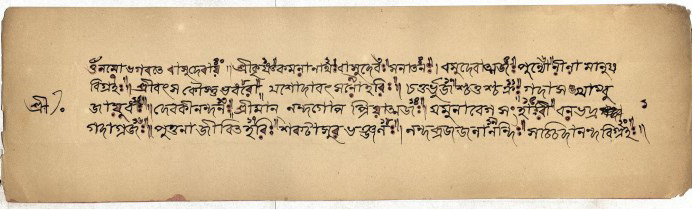 ওঁনমো ভগবতে বাসুদেবায়ঃ॥ শ্রীকৃষ্ণঃ কমলানাথঃ॥ বাসুদেবঃ সনাতনঃ॥ বসুদেবাত্মজঃ॥ পুণ্যো॥ লীলা মানুষ
বিগ্রহঃ॥ শ্রীবৎস কৌস্তুভ ধরো॥ যশোদাবৎসলো হরিঃ॥ গদাসঙ্খাম্বু
শ্রী জায়ুধঃ॥ দেবকীনন্দনঃ॥ শ্রীমান নন্দগোপ প্রিয়াত্মজঃ॥ যমুনাবেগ সংহারী বলভদ্র
গদাগ্রজঃ॥ পুতনা জীবিত হরঃ॥ শকটাসুর ভঞ্জনঃ॥ নন্দব্রজজনানন্দি॥ সচ্চিদানন্দ বিগ্রহঃ॥